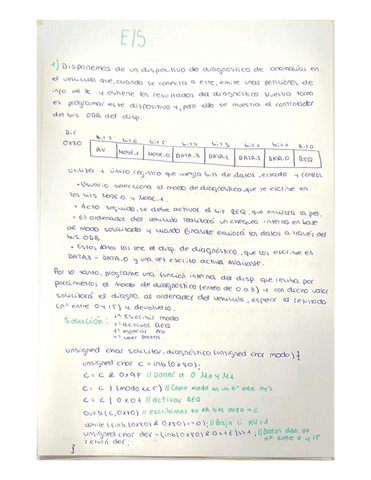 E/S:
1) Disponemos de un dispositivo de diagnóstico de anomalías en
el vehículo que, cuando se conecta a este, emite unas peticiones de
info al PC y obtiene los resultados del diagnóstico. Nuestra tarea
es programar este dispositivo y, para ello se muestra el controlador
del bus ODB del disp:
Dir Bit 7 bit 6 bit 5 bit 4 bit 3 bit 2 bit 1 Bit 0
0x80 AV MODE.1 MODE.0 DATA.3 DATA.2 DATA.1 DATA.0 REQ
Utiliza 1 único registro que mezcla bits de datos, estado y control
• Usuario selecciona el modo de diagnóstico, que se escribe en
los bits MODE.0 y MODE.1.
• Acto seguido, se debe activar el bit REQ, que enviará la pet.
• El ordenador del vehículo realizará un chequeo interno en base
al modo solicitado y cuando finalice enviará los datos a través del
bus ODB.
• Estos datos los lee el disp. de diagnóstico, que los escribe en
DATA.3 - DATA.0 y una vez escrito activa Available.
Por lo tanto, programe una función interna del disp. que reciba por
parámetros el modo de diagnóstico (entero de 0 a 3) y con dicho valor
solicitará el diagnó. al ordenador del vehículo, esperar el resultado
(entre 0 y 15) y devolverlo.
Solución: 1º Escribir modo
2º activar REQ
3º esperar AV
4º leer datos
unsigned char solicitar_diagnóstico (unsigned char modo) {
unsigned char c = inb(0x80);
c = c & 0x9F // Poner a 0 M0 y M1
c = c | (modo << 5) // Como modo es un nº entre 0 y 3
c = c | 0x01 // activar REQ
outb(c, 0x80) // escribimos en
while ((inb(0x80) & 0x80) == 0); // Bajo si AV = 1
unsigned char der = (inb(0x80) & 0x1E) >> 1; // Datos dan un
nº entre 0 y 15
return der;
}